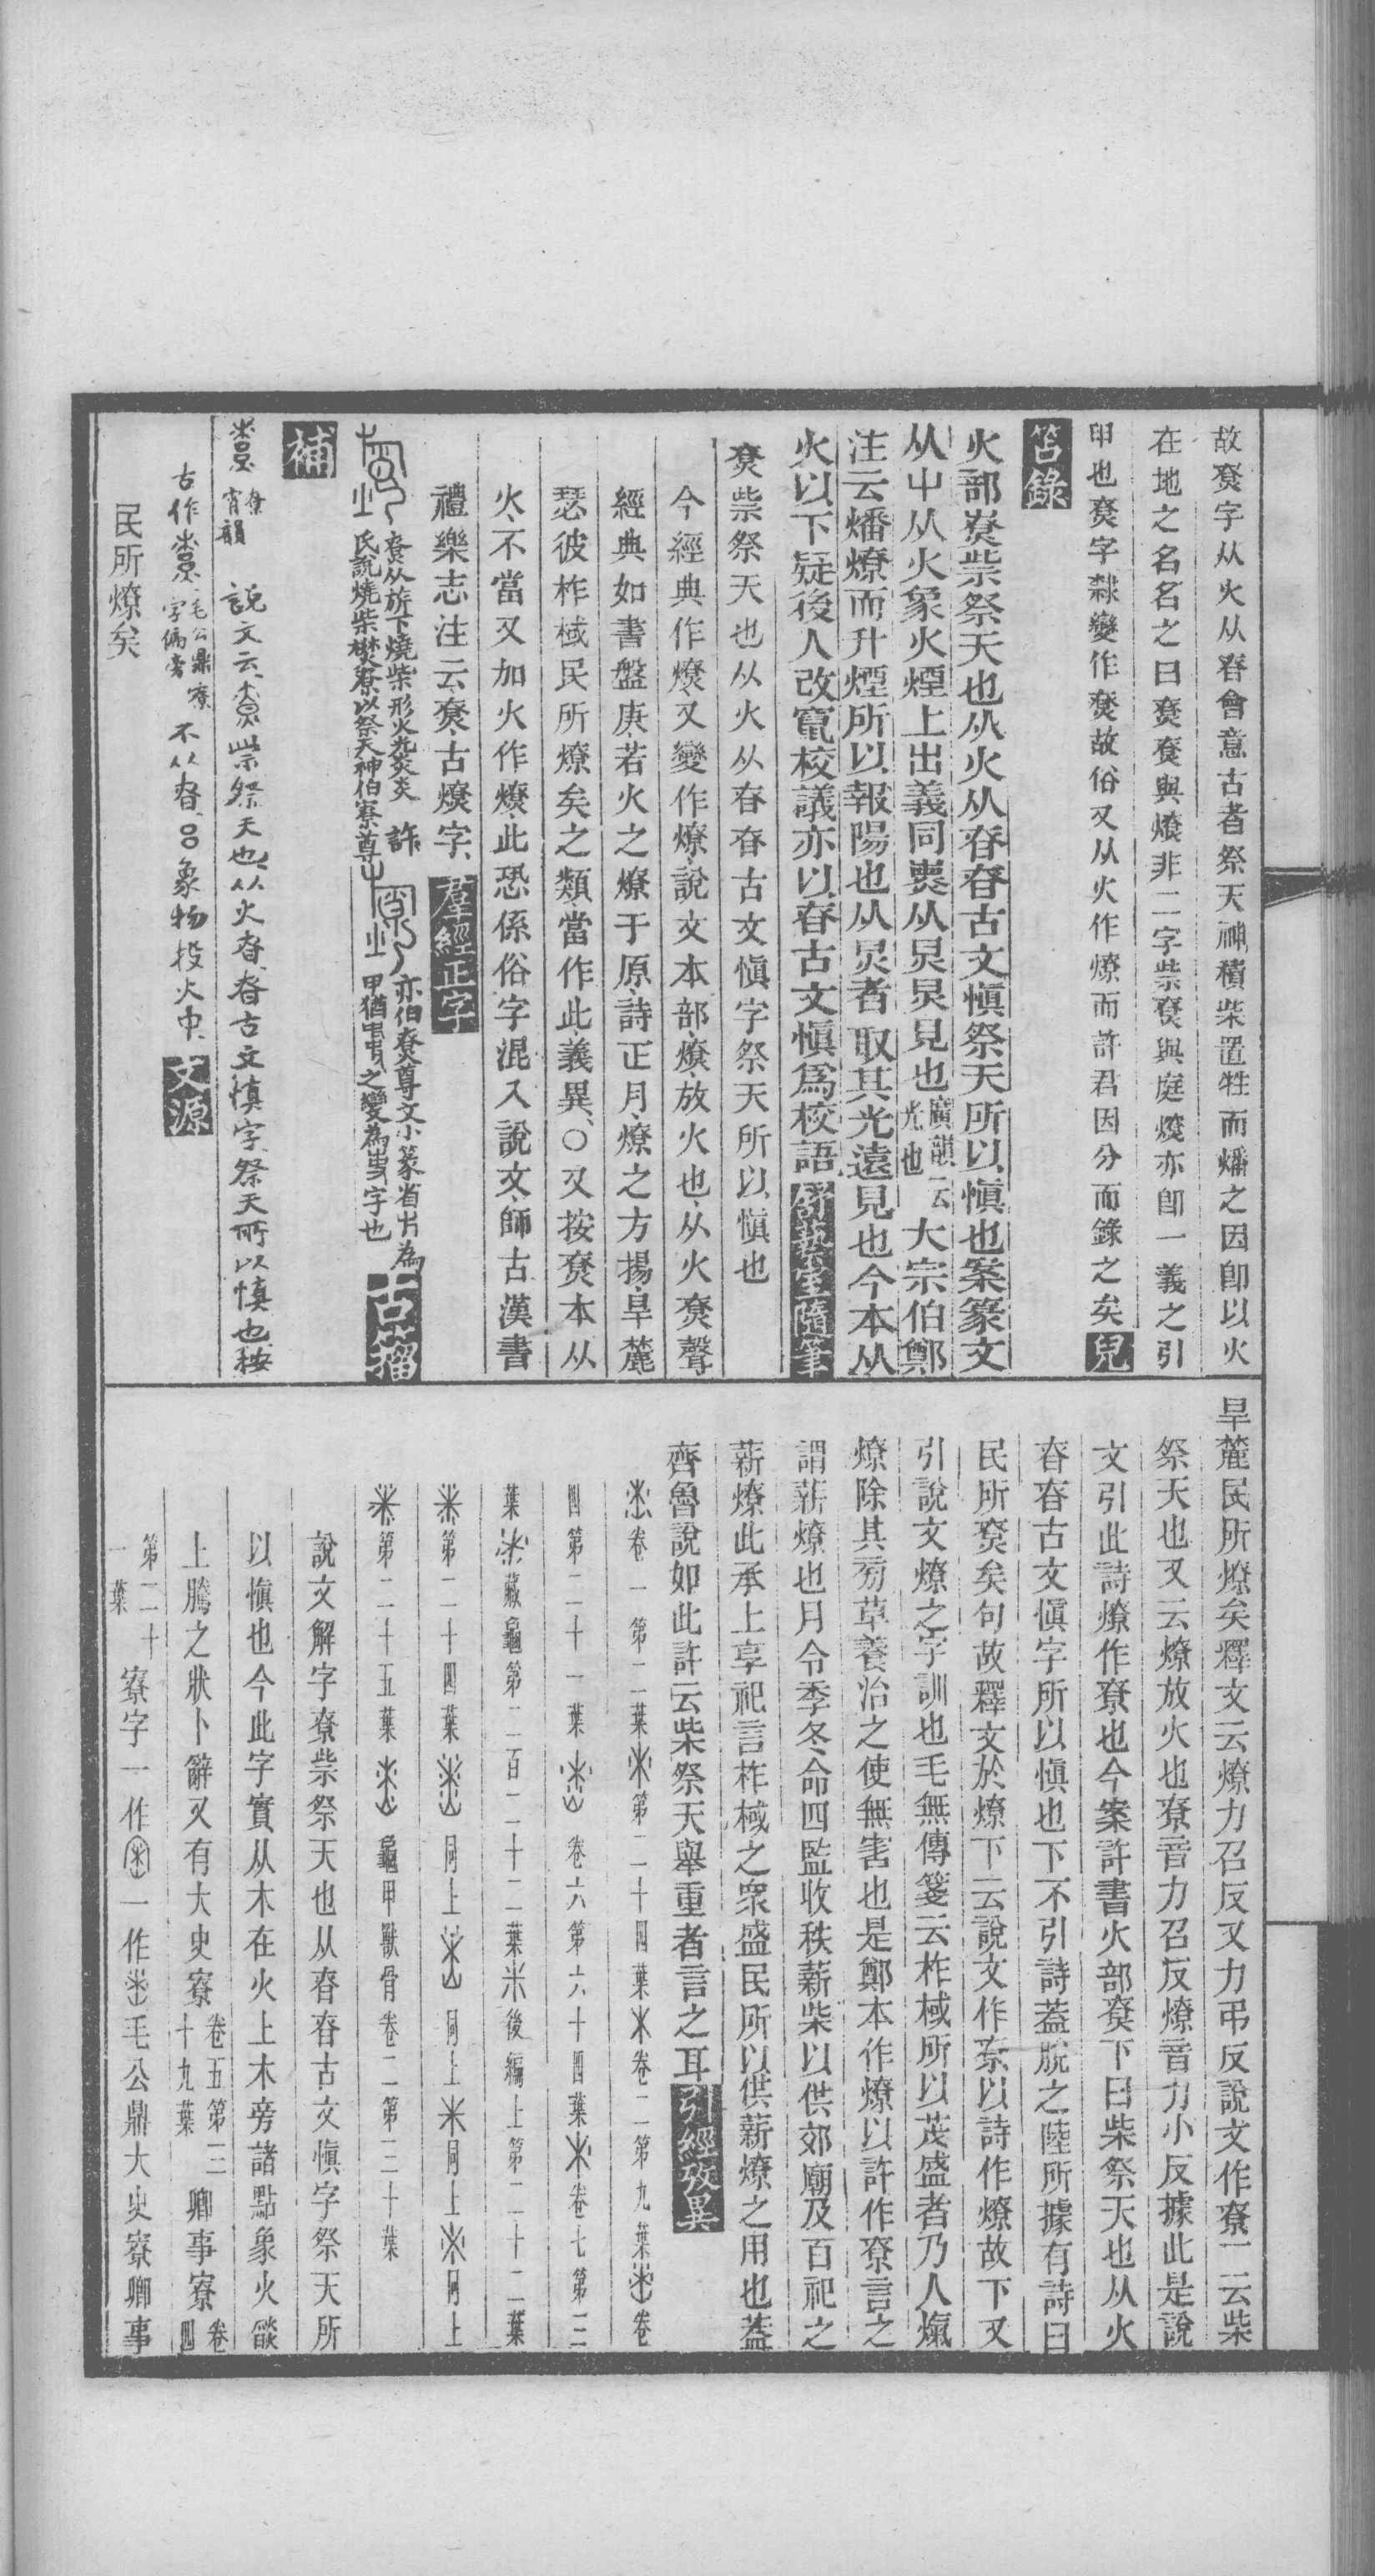 故尞字从火从昚會意古者祭天神積柴置牲而燔之因卽以火
在地之名名之曰尞尞與燎非二字祡尞與庭燎亦卽一義之引
申也尞字隸變作尞故俗又从火作燎而許君因分而錄之矣兒
笘錄
火部尞祡祭天也从火从昚昚古文愼祭天所以愼也案篆文
从屮从火象火煙上出義同㷼从炅炅見也廣韻云光也大宗伯鄭
注云燔燎而升煙所以報陽也从炅者取其光遠見也今本从
火以下疑後人改竄校議亦以昚古文愼爲校語舒蓺室隨筆
尞祡祭天也从火从昚昚古文愼字祭天所以愼也
今經典作燎又變作燎說文本部燎放火也从火尞聲
經典如書盤庚若火之燎于原詩正月燎之方揚旱麓
瑟彼柞棫民所燎矣之類當作此義異〇又按尞本从
火不當又加火作燎此恐係俗字混入說文師古漢書
禮樂志注云尞古燎字羣經正字
尞从㫃下燒柴形火光炎炎許
氏說燒柴樊尞以祭天神伯寮尊
亦伯寮尊文小篆省為
甲猶之變為字也古籀
補
尞宵韻說文云尞祡祭天也从火昚昚古文愼字祭天所以愼也按
古作毛公鼎寮字偏旁不从昚吕象物投火中文源
民所燎矣
旱麓民所燎矣釋文云燎力召反又力弔反說文作尞一云柴
祭天也又云燎放火也尞音力召反燎音力小反據此是說
文引此詩燎作尞也今案許書火部尞下曰柴祭天也从火
昚昚古文愼字所以愼也下不引詩蓋脫之陸所據有詩曰
民所尞矣句故釋文於燎下云說文作尞以詩作燎故下又
引說文燎之字訓也毛無傳箋云柞棫所以茂盛者乃人熂
燎除其旁草養治之使無害也是鄭本作燎以許作尞言之
謂薪燎也月令季冬命四監收秩薪柴以供郊廟及百祀之
薪燎此承上享祀言柞棫之衆盛民所以供薪燎之用也蓋
齊魯說如此許云柴祭天舉重者言之耳引經攷異
卷一第二葉第二十四葉卷二第九葉卷
四第二十一葉卷六第六十四葉卷七第三
葉藏龜第二百二十二葉後編上第二十二葉
第二十四葉同上同上同上同上
第二十五葉龜甲獸骨卷二第三十葉
說文解字尞祡祭天也从昚昚古文愼字祭天所
以愼也今此字實从木在火上木旁諸點象火燄
上騰之狀卜辭又有大史寮卷五第三十九葉卿事寮卷四
第二十一葉寮字一作一作毛公鼎大史寮卿事